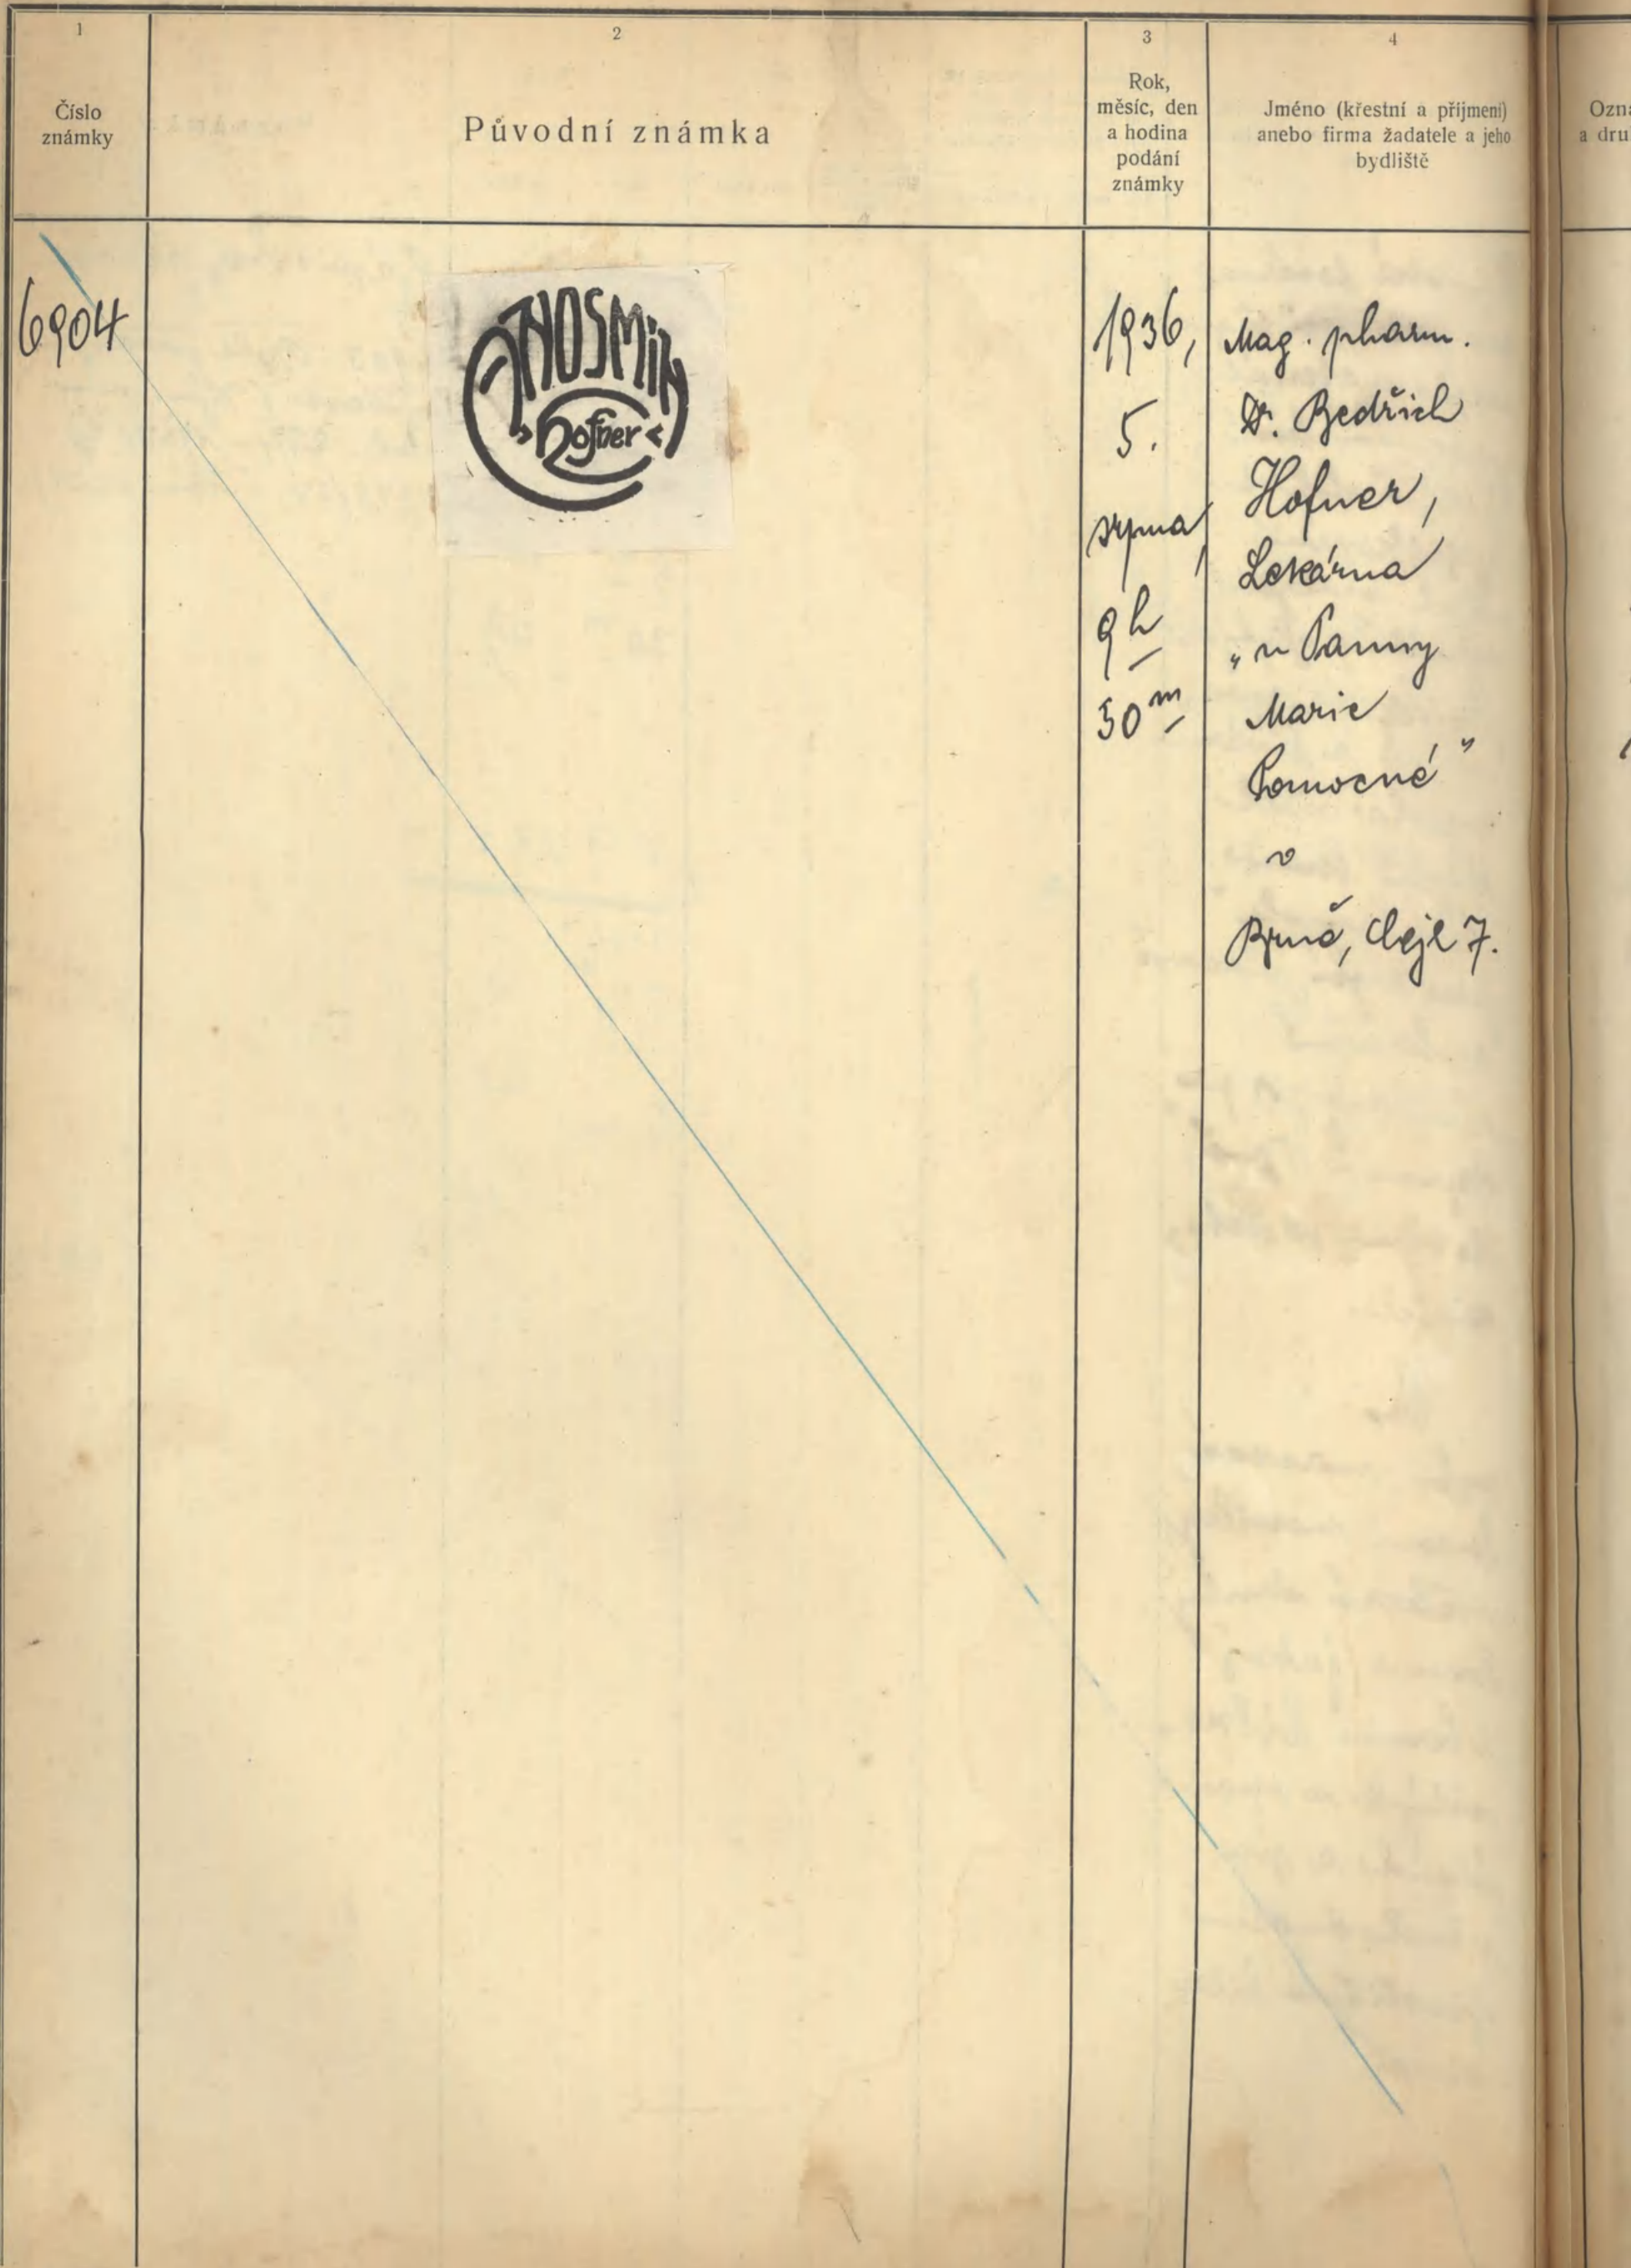 1
Číslo
známky
2
Původní známka
3
Rok,
měsíc, den
a hodina
podání
známky
4
Jméno (křestní a příjmení)
anebo firma žadatele a jeho
bydliště
Ozn
a dru
6904
ANOSMIN
Hofner
1936,
5.
srpna,
9h
50m
Mag. pharm.
Dr. Bedřich
Hofner,
Lekárna
„u Panny
Marie
Pomocné"
v
Brně, Cejl 7.